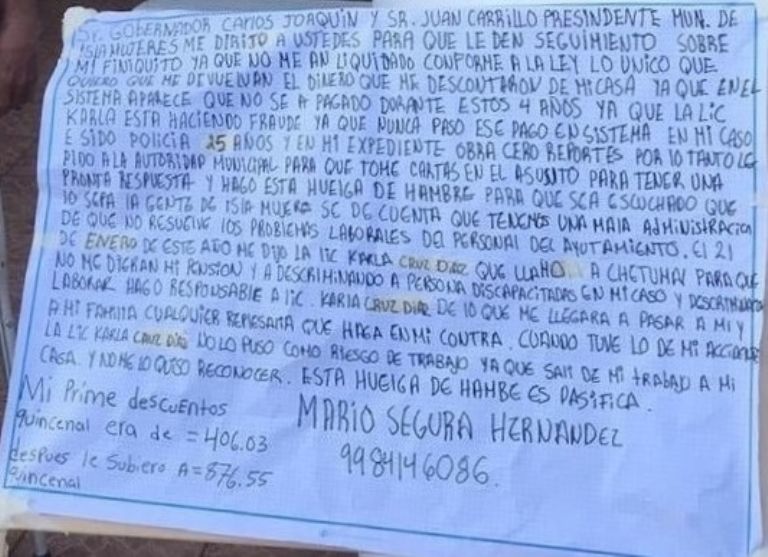 SR. GOBERNADOR CARLOS JOAQUIN Y SR. JUAN CARRILLO PRESINDENTE MUN. DE
ISLA MUJERES ME DIRIJO A USTEDES PARA QUE LE DEN SEGUIMIENTO SOBRE
MI FINIQUITO YA QUE NO ME AN LIQUIDADO CONFORME A LA LEY LO UNICO QUE
QUIERO QUE ME DEVUELVAN EL DINERO QUE ME DESCONTARON DE MI CASA YA QUE EN EL
SISTEMA APARECE QUE NO SE A PAGADO DORANTE ESTOS 4 AÑOS YA QUE LA LIC
KARLA ESTA HACIENDO FRAUDE YA QUE NUNCA PASO ESE PAGO EN SISTEMA EN MI CASO
E SIDO POLICIA 25 AÑOS Y EN MI EXPEDIENTE OBRA CERO REPORTES POR LO TANTO LE
PIDO A LA AUTORIDAD MUNICIPAL PARA QUE TOME CARTAS EN EL ASUNTO PARA TENER UNA
PRONTA RESPUESTA Y HAGO ESTA HUELGA DE HAMBRE PARA QUE SEA ESCUCHADO QUE
LO SEPA LA GENTE DE ISLA MUJERE SE DE CUENTA QUE TENEMOS UNA MALA ADMINISTRACION
DE QUE NO RESUELVE LOS PROBLEMAS LABORALES DEL PERSONAL DEL AYUTAMIENTO. El 21
DE ENERO DE ESTE AÑO ME DIJO LA LIC KARLA CRUZ DIAZ QUE LLAMO A CHETUMAL PARA QUE
NO ME DIERAN MI PENSION Y A DESCRIMINANDO A PERSONA DISCAPACITADAS EN MI CASO Y
LABORAR HAGO RESPONSABLE A LIC. KARLA CRUZ DIAZ DE LO QUE ME LLEGARA A PASAR A MI Y
A MI FAMILIA CUALQUIER REPRESARIA QUE HAGA EN MI CONTRA. CUANDO TUVE LO DE MI ACCIDENTE
LA LIC KARLA CRUZ DIAZ NO LO PUSO COMO RIESGO DE TRABAJO YA QUE SALI DE MI TRABAJO A MI
CASA. Y NO ME LO QUISO RECONOCER. ESTA HUELGA DE HAMBE ES PASIFICA.
Mi Prime descuentos
quincenal era de = 406.03
despues le Subiero A = 876.55
quincenal
MARIO SEGURA HERNANDEZ
9984146086.